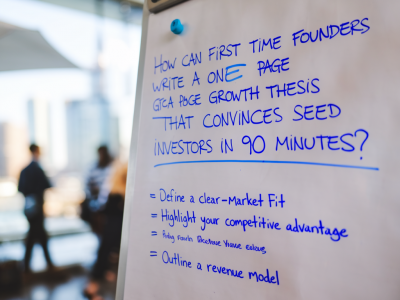 HOW CAN FIRST TIME FOUNDERS
WRITE A ONE PAGE
PAGE GROWTH THESIS
THAT CONVINCES SEED
INVESTORS IN 90 MINUTES?
= Define a clear-Market Fit
= Highlight your competitive advantage
=
= Outline a revenue model